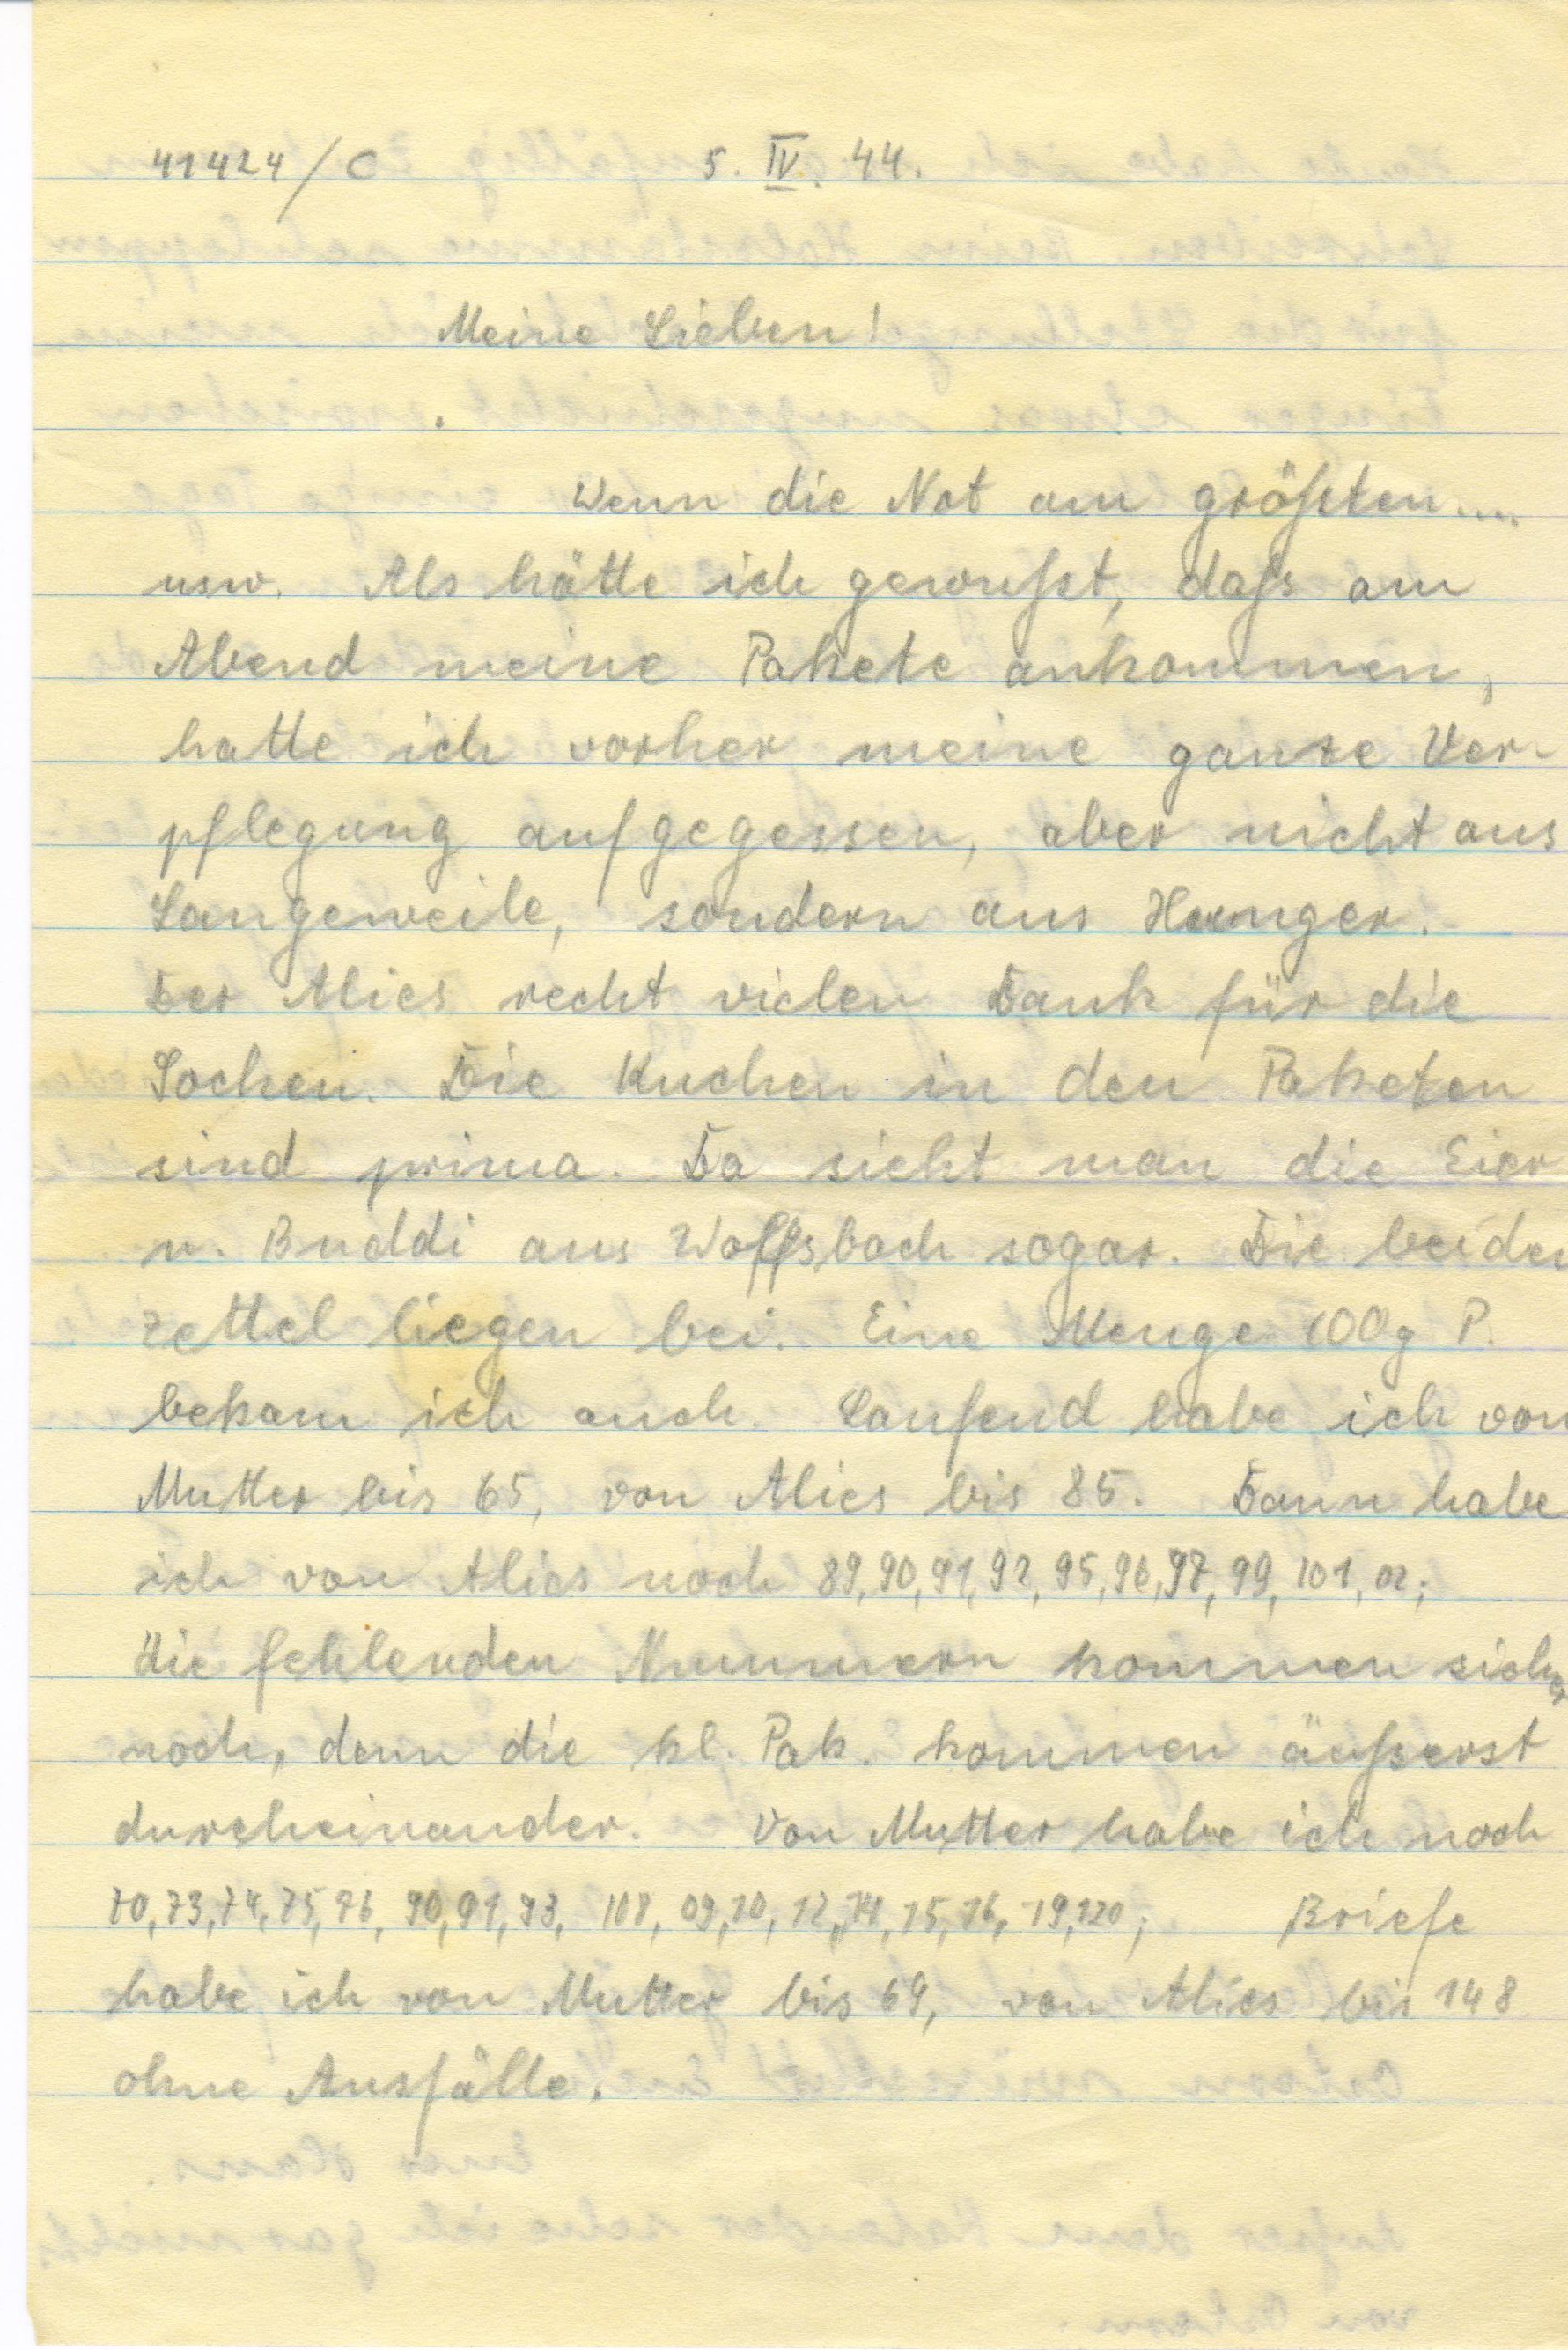 41424/C 5. IV. 44.
Meine Lieben!
Wenn die Not am größten....
usw. Als hätte ich gewußt, daß am
Abend meine Pakete ankommen,
hatte ich vorher meine ganze Ver-
pflegung aufgegessen, aber nicht aus
Langeweile, sondern aus Hunger.
Der Alies recht vielen Dank für die
Socken. Die Kuchen in den Paketen
sind prima. Da sieht man die Eier
u. Buddi aus Woffsbach sogar. Die beiden
Zettel liegen bei. Eine Menge 100g P.
bekam ich auch. Laufend habe ich von
Mutter bis 65, von Alies bis 85. Dann habe
ich von Alies noch 89, 90, 91, 92, 95, 96, 97, 99, 101, 02;
die fehlenden Nummern kommen sicher
noch, denn die kl. Pak. kommen äußerst
durcheinander. Von Mutter habe ich noch
70, 73, 74, 75, 76, 90, 91, 93, 108, 09, 10, 12, 14, 15, 16, 19, 120; Briefe
habe ich von Mutter bis 69, von Alies bis 148
ohne Ausfälle.